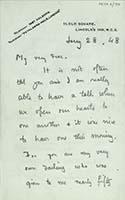 LINCOLN'S INN, W.C.2.
Jany 28. 48
My very dear
It is not often
that you and I are really
able to have a talk when
we open our hearts to
one another & it was nice
to have one this morning.
you are my very
own darling who was
given to me nearly fifty